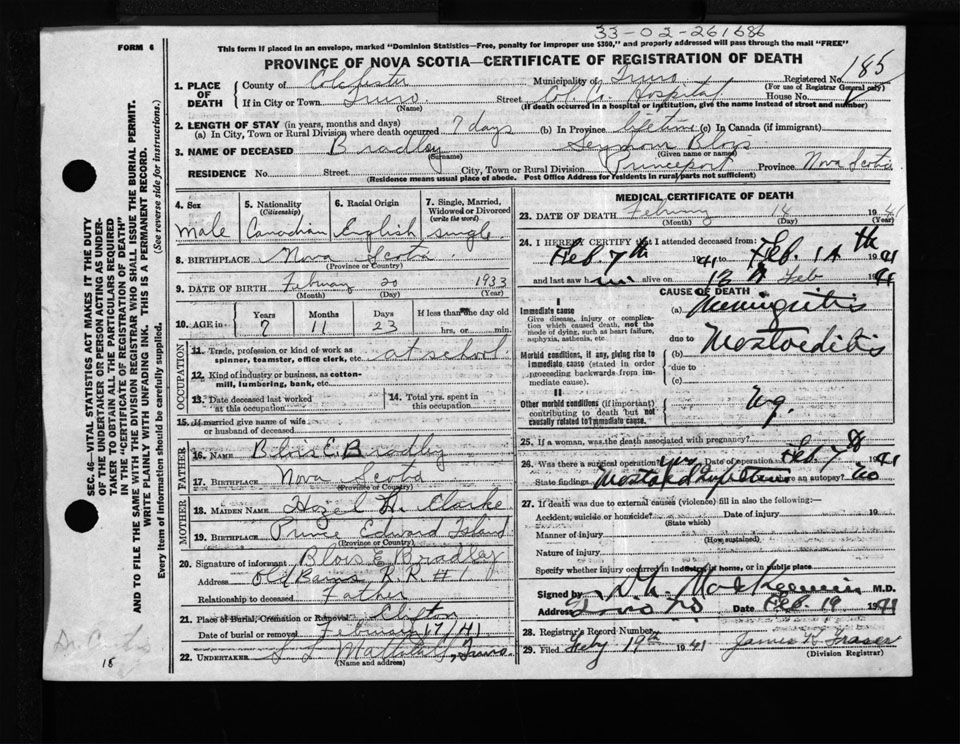 33-02-261686
FORM 6
This form if placed in an envelope, marked "Dominion Statistics—Free, penalty for improper use $300," and properly addressed will pass through the mail "FREE"
PROVINCE OF NOVA SCOTIA—CERTIFICATE OF REGISTRATION OF DEATH
Registered No. 185
(For use of Registrar General only)
1. PLACE OF DEATH
County of Colchester Municipality of Truro
If in City or Town Truro Street Hospital House No.
(Name) (If death occurred in a hospital or institution, give the name instead of street and number)
2. LENGTH OF STAY (in years, months and days)
(a) In City, Town or Rural Division where death occurred 7 days (b) In Province lifetime (c) In Canada (if immigrant)
3. NAME OF DECEASED Bradley Seymour Blois
(Surname) (Given name or names)
RESIDENCE No. Street City, Town or Rural Division Princeport Province Nova Scotia
(Residence means usual place of abode. Post Office Address for Residents in rural parts not sufficient)
4. Sex
Male
5. Nationality
(Citizenship)
Canadian
6. Racial Origin
English
7. Single, Married, Widowed or Divorced
(write the word)
single
8. BIRTHPLACE Nova Scotia
(Province or Country)
9. DATE OF BIRTH February 20 1933
(Month) (Day) (Year)
10. AGE in
Years Months Days If less than one day old
7 11 23 hrs. or min.
OCCUPATION
11. Trade, profession or kind of work as spinner, teamster, office clerk, etc. at school
12. Kind of industry or business, as cotton-mill, lumbering, bank, etc.
13. Date deceased last worked at this occupation
14. Total yrs. spent in this occupation
15. If married give name of wife or husband of deceased
FATHER
16. NAME Blois E Bradley
17. BIRTHPLACE Nova Scotia
(Province or Country)
MOTHER
18. MAIDEN NAME Hazel Clarke
19. BIRTHPLACE Prince Edward Island
(Province or Country)
20. Signature of informant Blois E Bradley
Address Old Barns, R.R. # 1
Relationship to deceased Father
21. Place of Burial, Cremation or Removal Clifton
Date of burial or removal February
22. UNDERTAKER Truro
(Name and address)
MEDICAL CERTIFICATE OF DEATH
23. DATE OF DEATH February 18 1941
(Month) (Day) (Year)
24. I HEREBY CERTIFY that I attended deceased from:
Feb. 7th 1941 Feb. 1941
and last saw him alive on Feb 1941
CAUSE OF DEATH
I
Immediate cause
Give disease, injury or complication which caused death, not the mode of dying, such as heart failure, asphyxia, asthenia, etc.
(a) Meningitis
due to
Morbid conditions, if any, giving rise to immediate cause (stated in order proceeding backwards from immediate cause).
(b)
due to
(c)
II
Other morbid conditions (if important) contributing to death but not causally related to immediate cause.
25. If a woman, was the death associated with pregnancy?
26. Was there a surgical operation? Yes Date of operation Feb. 7 1941
State findings Was there an autopsy? No
27. If death was due to external causes (violence) fill in also the following:—
Accident, suicide or homicide? Date of injury 19
(State which)
Manner of injury
(How sustained)
Nature of injury
Specify whether injury occurred in industry, in home, or in public place
Signed by M.D.
Address Truro Date Feb. 19 1941
28. Registrar's Record Number
29. Filed Feby 19th 1941 James Fraser
(Division Registrar)
SEC. 46—VITAL STATISTICS ACT MAKES IT THE DUTY
OF THE UNDERTAKER OR PERSON ACTING AS UNDER-
TAKER TO OBTAIN ALL THE PARTICULARS REQUIRED
IN THE "CERTIFICATE OF REGISTRATION OF DEATH"
AND TO FILE THE SAME WITH THE DIVISION REGISTRAR WHO SHALL ISSUE THE BURIAL PERMIT.
WRITE PLAINLY WITH UNFADING INK. THIS IS A PERMANENT RECORD.
Every Item of Information should be carefully supplied. (See reverse side for instructions.)
18